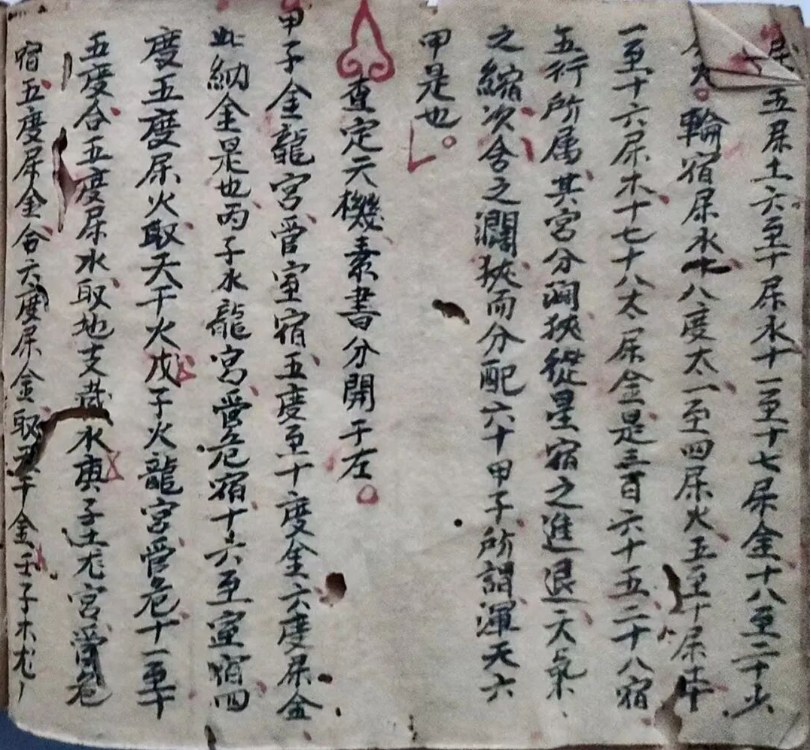 五屎土六至十屎水十一至十七屎金十八至二十火
火輪宿屎水十八度太一至四屎火五至十屎土十
一至十六屎木十七十八太屎金是三百六十五二十八宿
五行所属其宮分濶狹從星宿之進退天氣
之縮次舍之濶狹而分配六十甲子所謂渾天六
甲是也
查定天機素書分開于左
甲子金龍宮管室宿五度至十度金六度屎金
此納金是也丙子水龍宮管危宿十六至室宿四
度五度屎火取天干火戊子火龍宮管危十一至十
五度合五度屎水取地支藏水庚子土龙宮管危
宿五度屎金合六度屎金取天干金壬子木龙